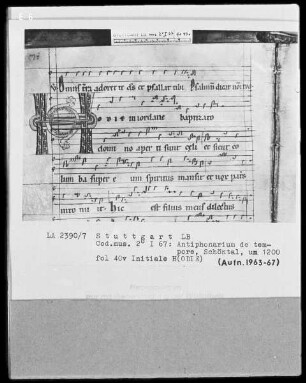 Omnis terra adoret te deus et psallat tibi. Psalmum dicat nomini tuo
H odie in iordane baptizato
domino aperti sunt celi et sicut co
lum ba super e um spiritus mansit et vox patris
hic est filius meus dilectus
La 2390/7 Stuttgart LB
Cod.mus. 2° I 67: Antiphonarium de tem-
pore, Schöntal, um 1200
fol 40v Initiale H(ODIE)
(Aufn.1963-67)